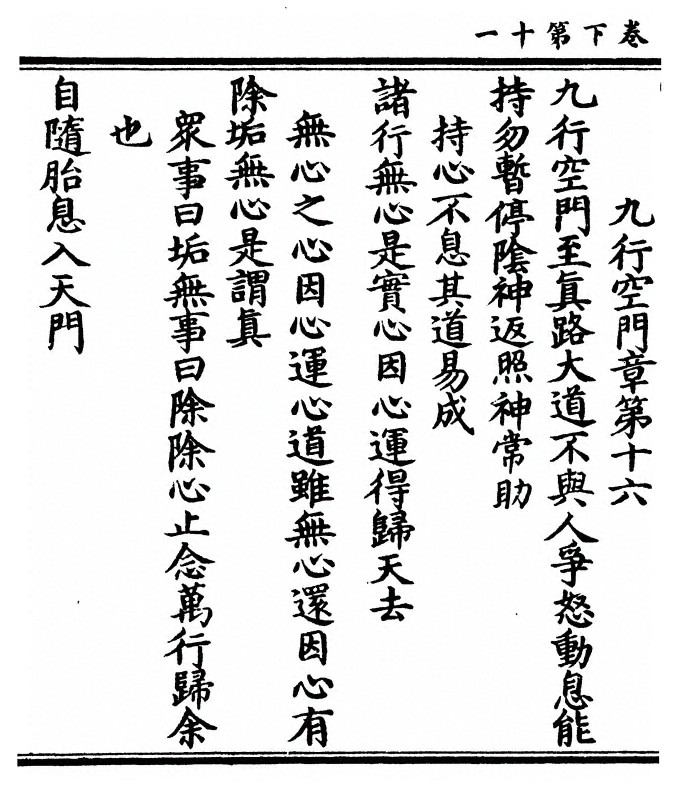 卷下第十一
九行空門章第十六
九行空門至眞路大道不與人爭怒動息能
持勿暫停陰神返照神常助
持心不息其道易成
諸行無心是實心因心運得歸天去
無心之心因心運心道雖無心還因心有
除垢無心是謂眞
眾事曰垢無事曰除除心止念萬行歸余
也
自隨胎息入天門